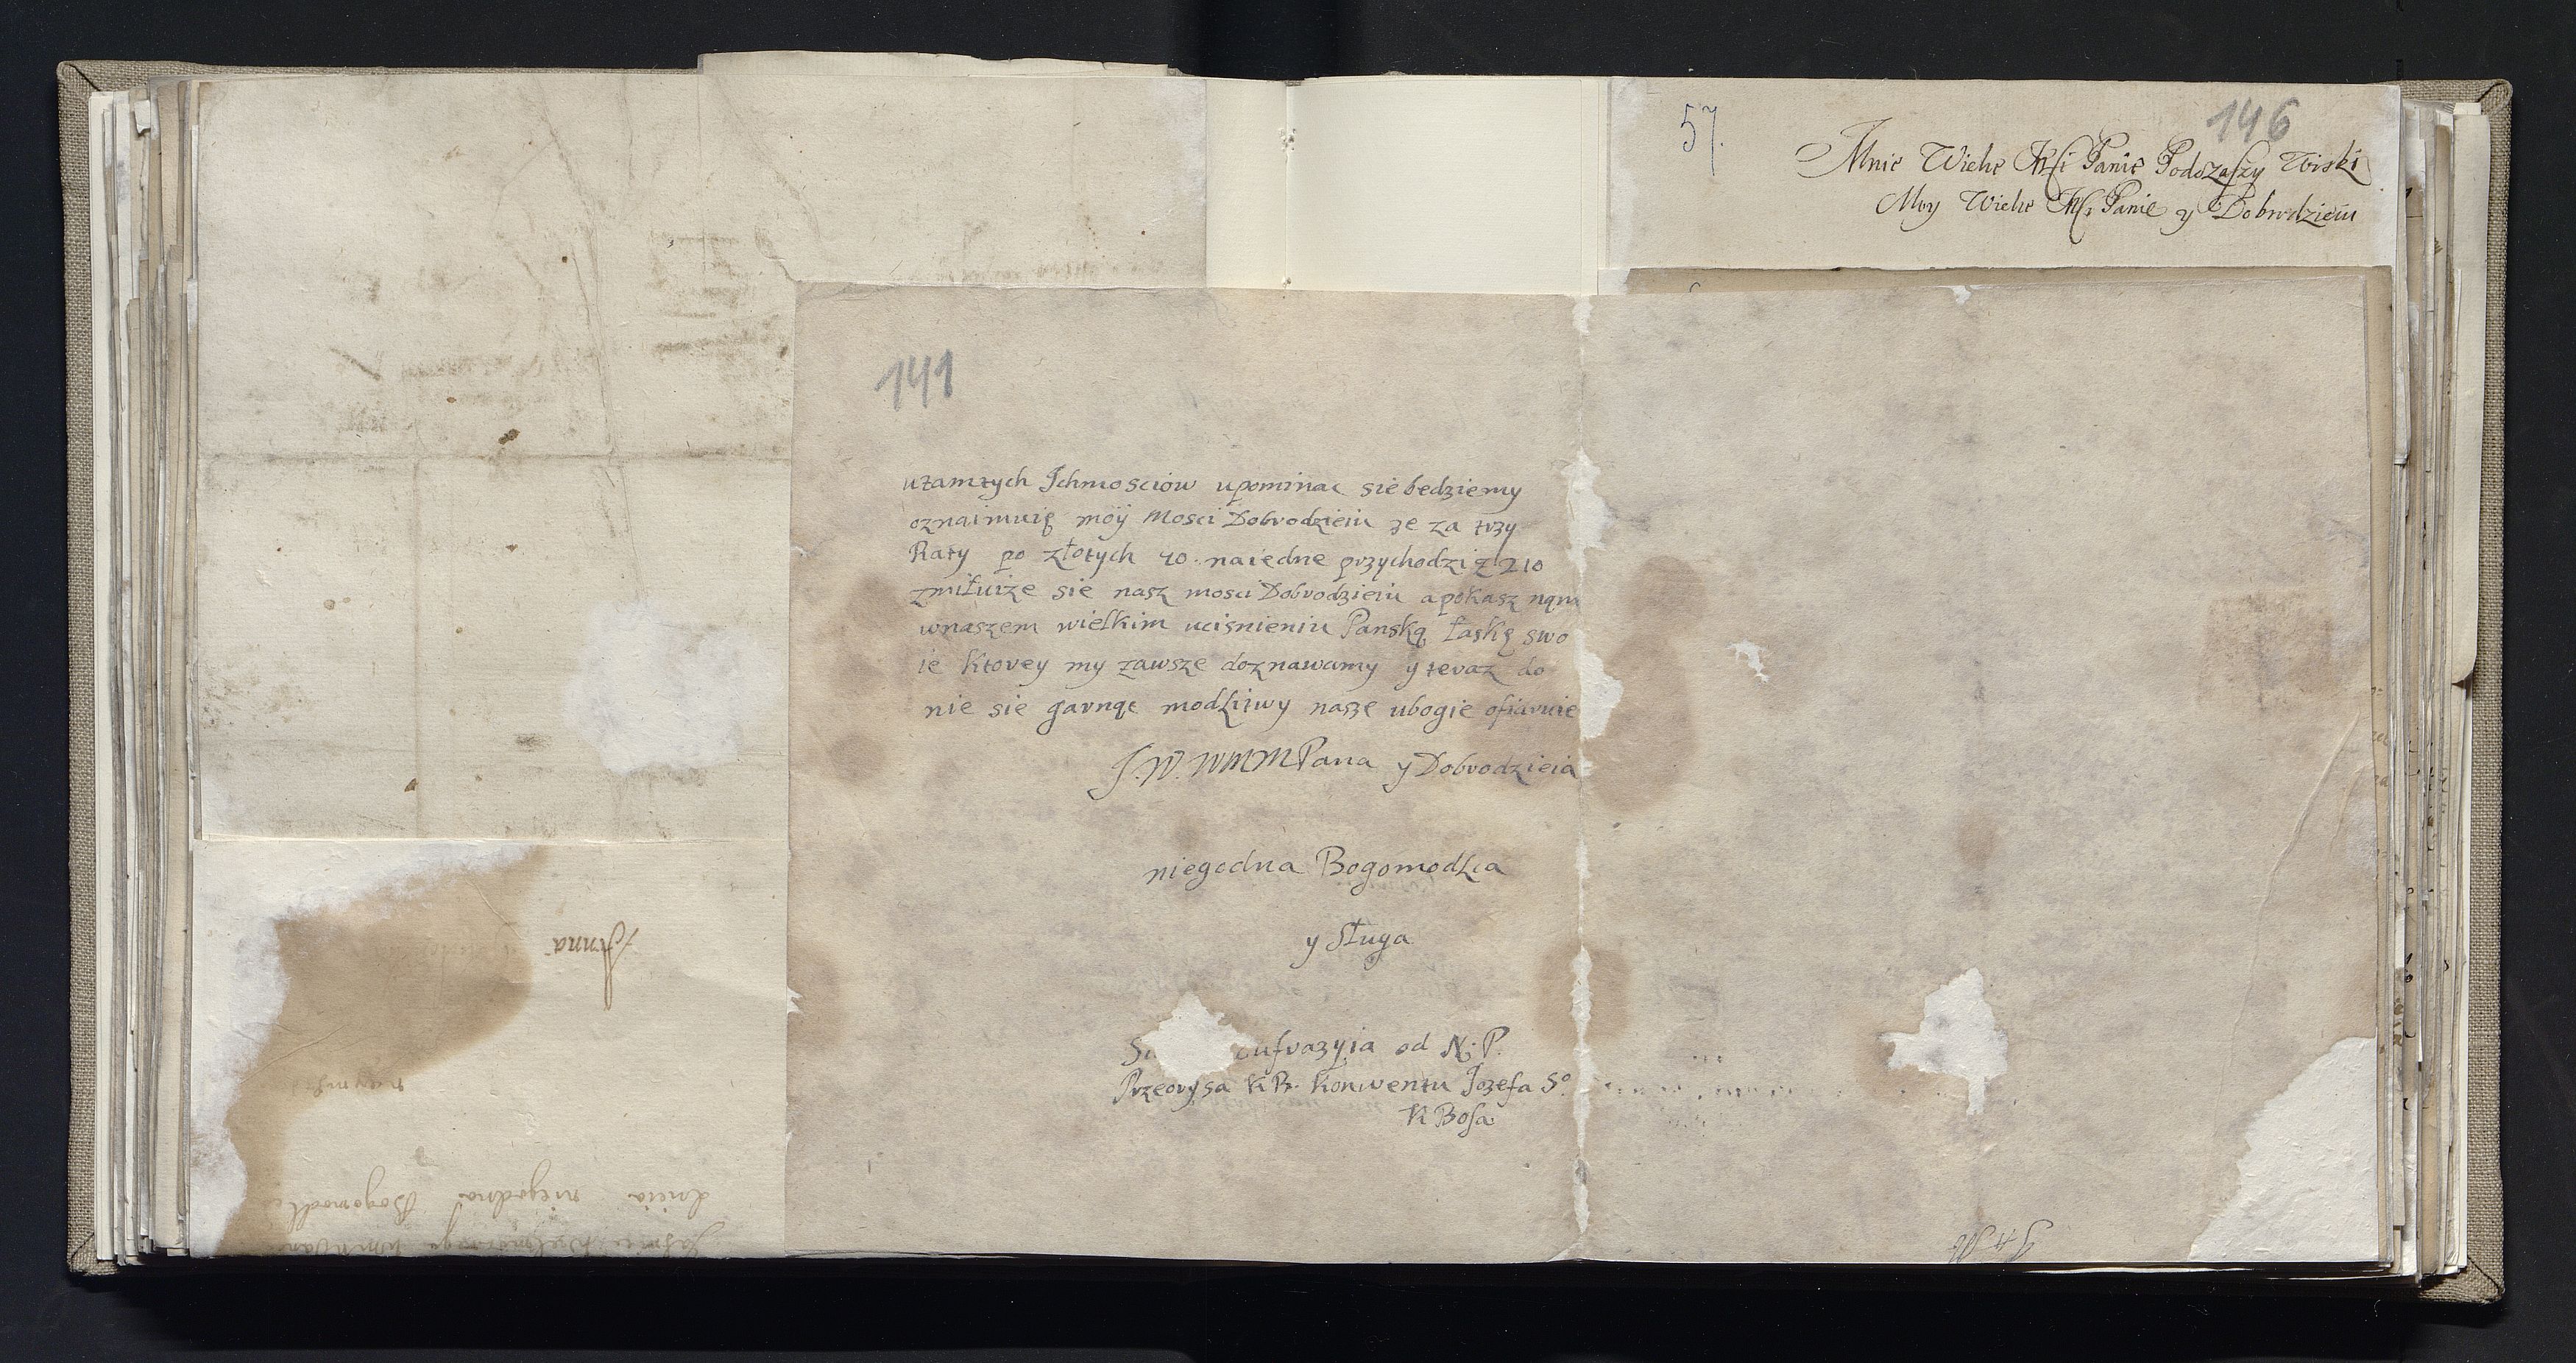 57.
146
Mnie Wielce Msci Panie Podczaszy
Moy Wielce Msci Panie y Dobrodzieiu
141
utamtych Jchmosciow upominac sie bedziemy
oznaimuię moÿ Mosci Dobrodzieiu ze za trzy
Raty po złotych 70 naiedne przychodzi z 210
zmiłuize sie nasz mosci Dobrodzieiu apokasz nąm
wnaszem wielkim ucisnieniu Panską łaskę swo
ie ktorey my zawsze doznawamy y teraz do
nie sie garnąc modlitwy nasze ubogie ofiaruie
J.W. WMMPana y Dobrodzieia
niegodna Bogomodlca
y sługa
ufrazyia od N. P.
Przeorysa KB. Konwentu Jozefa So.
K Bosa
Anna
dzieia niegodna Bogomodlca